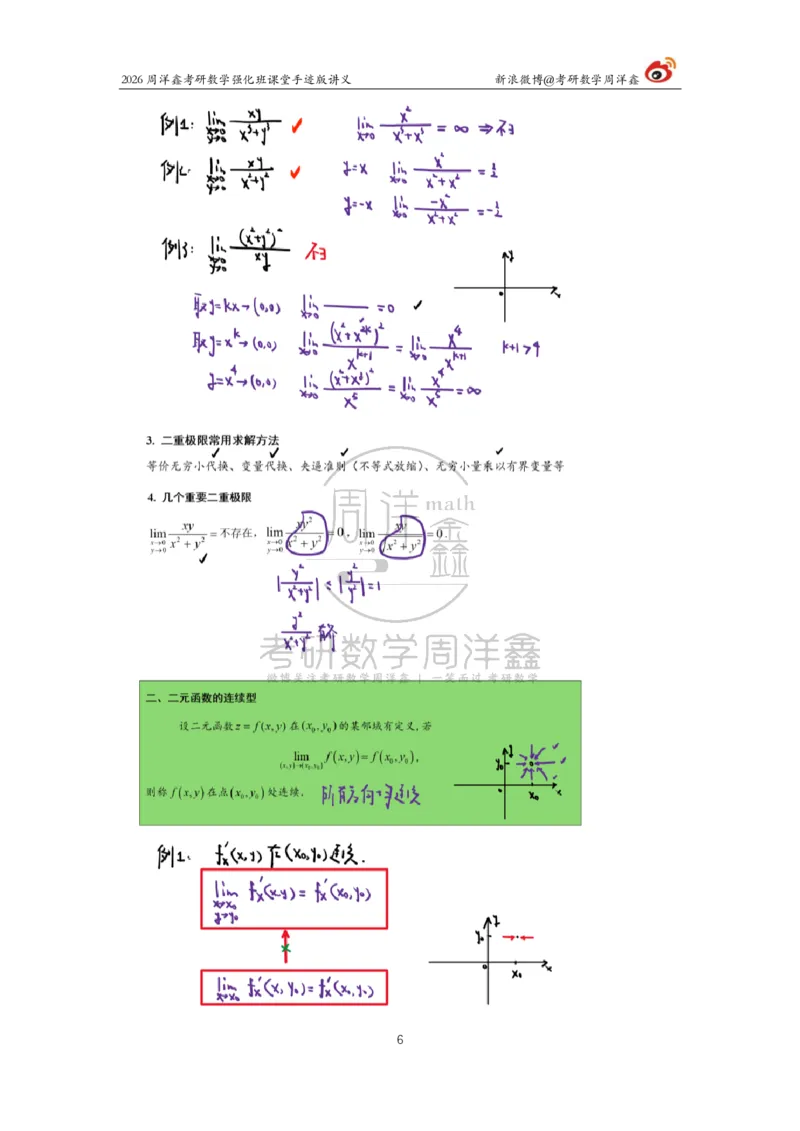 2026 周洋鑫考研数学强化班课堂手迹版讲义 新浪微博@考研数学周洋鑫
例1: lim x→0 y→0 xy/(x³+y³) ✓ lim x→0 x²/(x³+x³) = ∞ ⇒ 不∃
例2: lim x→0 y→0 xy/(x²+y²) ✓ y=x lim x→0 x²/(x²+x²) = 1/2
y=-x lim x→0 -x²/(x²+x²) = -1/2
例3: lim x→0 y→0 (x²+y²)²/xy 不∃
y
o x
取y=kx→(0,0) lim x→0 —— =0 ✓
取y=x^k→(0,0) lim x→0 (x²+x^{2k})²/x^{k+1} = lim x→0 x⁴/x^{k+1} k+1>4
y=x⁴→(0,0) lim x→0 (x²+x⁸)²/x⁵ = lim x→0 x⁴/x⁵ = ∞
3. 二重极限常用求解方法
等价无穷小代换、变量代换、夹逼准则（不等式放缩）、无穷小量乘以有界变量等
4. 几个重要二重极限
lim x→0 y→0 xy/(x²+y²) = 不存在, lim x→0 y→0 xy²/(x²+y²) = 0, lim x→0 y→0 xy/√(x²+y²) = 0.
|y²/(x²+y²)| ≤ |y²/y²| = 1
y²/(x²+y²) 有界
周洋鑫 math
考研数学周洋鑫
微博关注考研数学周洋鑫 | 一笑而过 考研数学
二、二元函数的连续型
设二元函数 z = f(x,y) 在 (x₀,y₀) 的某邻域有定义, 若
lim (x,y)→(x₀,y₀) f(x,y) = f(x₀,y₀),
则称 f(x,y) 在点 (x₀,y₀) 处连续. 所有方向均连续
y
y₀
o x₀ x
例1: f'ₓ(x,y) 在(x₀,y₀)连续.
lim x→x₀ y→y₀ f'ₓ(x,y) = f'ₓ(x₀,y₀)
y
y₀
o x₀ x
lim x→x₀ f'ₓ(x,y₀) = f'ₓ(x₀,y₀)
6